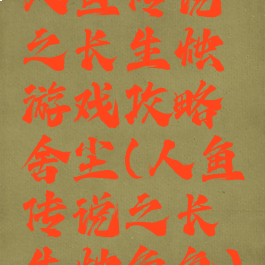 人鱼传说
之长生烛
游戏攻略
舍尘(人鱼
传说之长
生烛